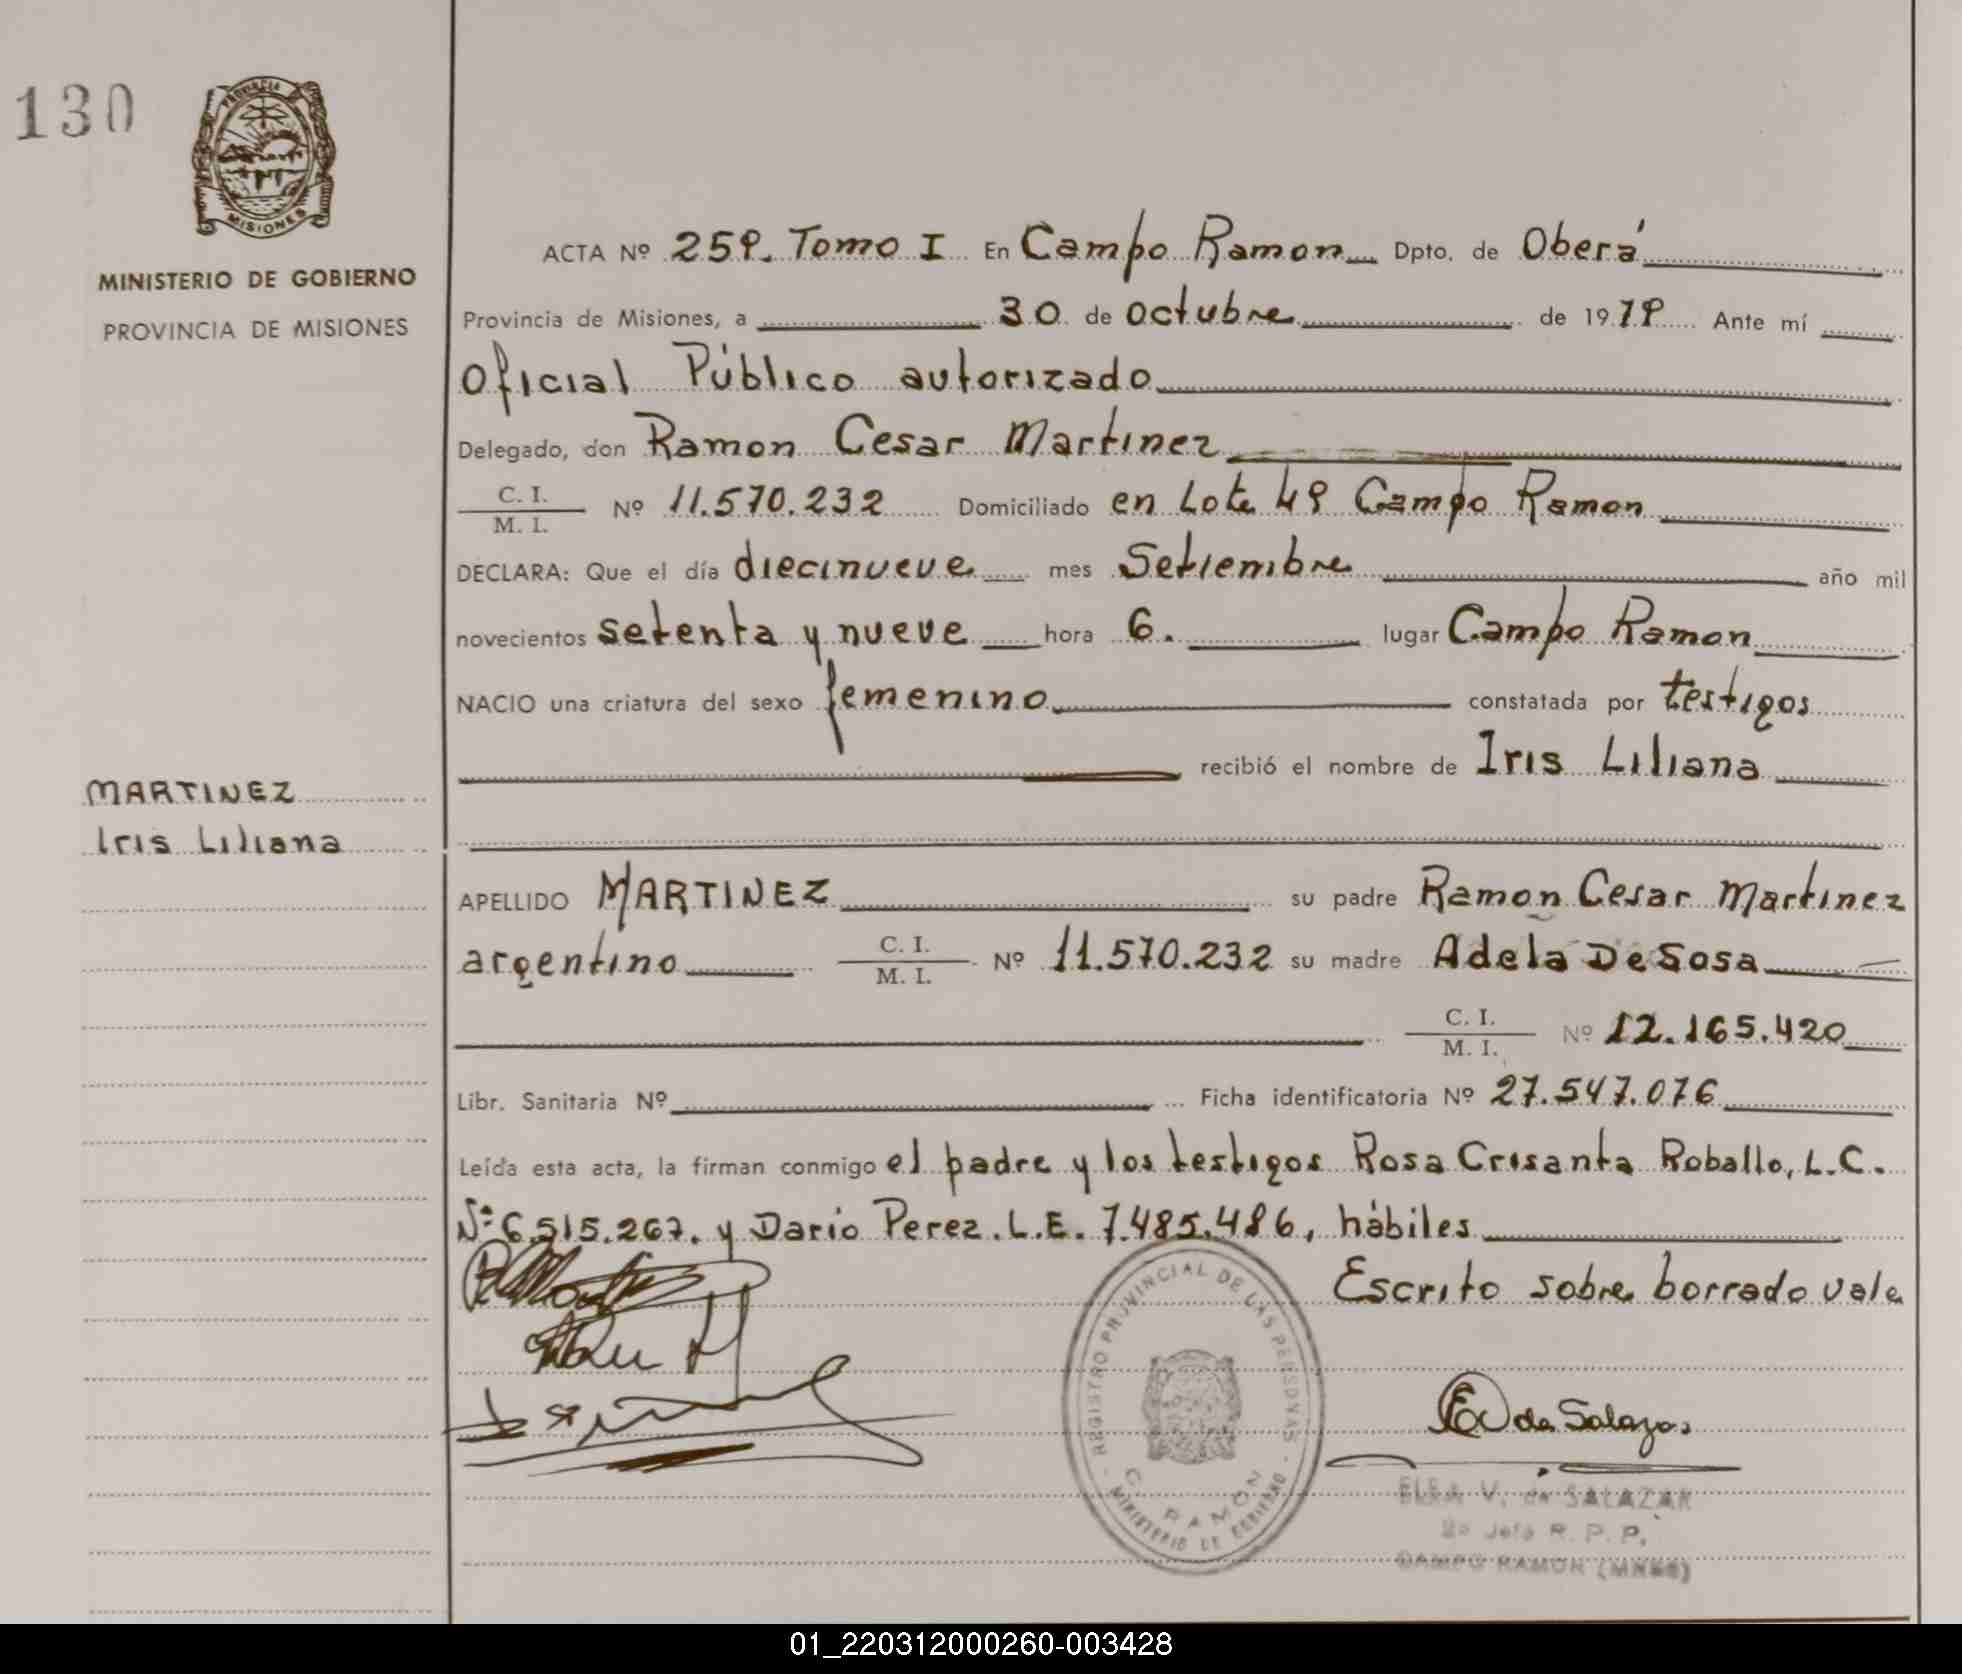 130
PROVINCIA
MISIONES
MINISTERIO DE GOBIERNO
PROVINCIA DE MISIONES
MARTINEZ
Iris Liliana
ACTA Nº 259. Tomo I En Campo Ramon Dpto. de Oberá
Provincia de Misiones, a 30 de octubre de 1979 Ante mí
Oficial Público autorizado
Delegado, don Ramon Cesar Martinez
C. I.
M. I.
Nº 11.570.232 Domiciliado en Lote 49 Campo Ramon
DECLARA: Que el día diecinueve mes Setiembre año mil
novecientos setenta y nueve hora 6. lugar Campo Ramon
NACIO una criatura del sexo femenino constatada por testigos
recibió el nombre de Iris Liliana
APELLIDO MARTINEZ su padre Ramon Cesar Martinez
argentino C. I. M. I. Nº 11.570.232 su madre Adela De Sosa
C. I.
M. I.
Nº 12.165.420
Libr. Sanitaria Nº Ficha identificatoria Nº 27.547.076
Leída esta acta, la firman conmigo el padre y los testigos Rosa Crisanta Roballo, L.C.
Nº 6.515.267. y Darío Perez. L.E. 7.485.486, hábiles
Escrito sobre borrado vale
REGISTRO PROVINCIAL DE LAS PERSONAS
C. RAMON
MINISTERIO DE GOBIERNO
de Salazar
ELSA V. de SALAZAR
2º Jefe R. P. P.
CAMPO RAMON (MNES)
01_220312000260-003428